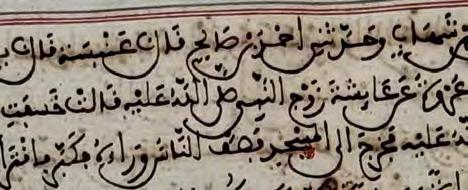 شهاب وحدثني احمد بن صالح قال عنبسة قال
عروة عن عايشة زوج النبي صلى الله عليه قالت خسفت
الله عليه فخرج الى المسجد فصف الناس وراءه فكبر فاقترا